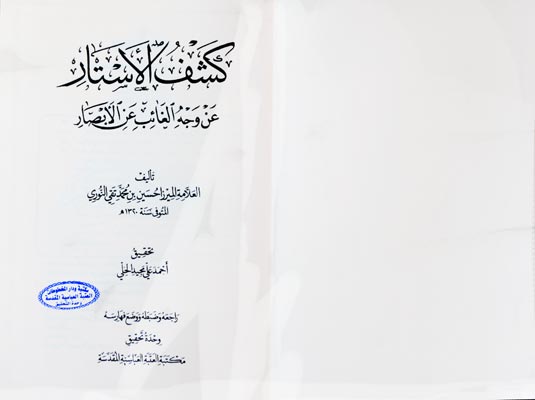 كشف الأستار
عن وجه الغائب عن الأبصار
تأليف
العلامة الميرزا حسين بن محمد تقي النوري
المتوفى سنة ١٣٢٠هـ
تحقيق
أحمد علي مجيد الحلي
مكتبة ودار المخطوطات
العتبة العباسية المقدسة
وحدة التحقيق
راجعه وضبطه ووضع فهارسه
وحدة تحقيق
مكتبة العتبة العباسية المقدسة